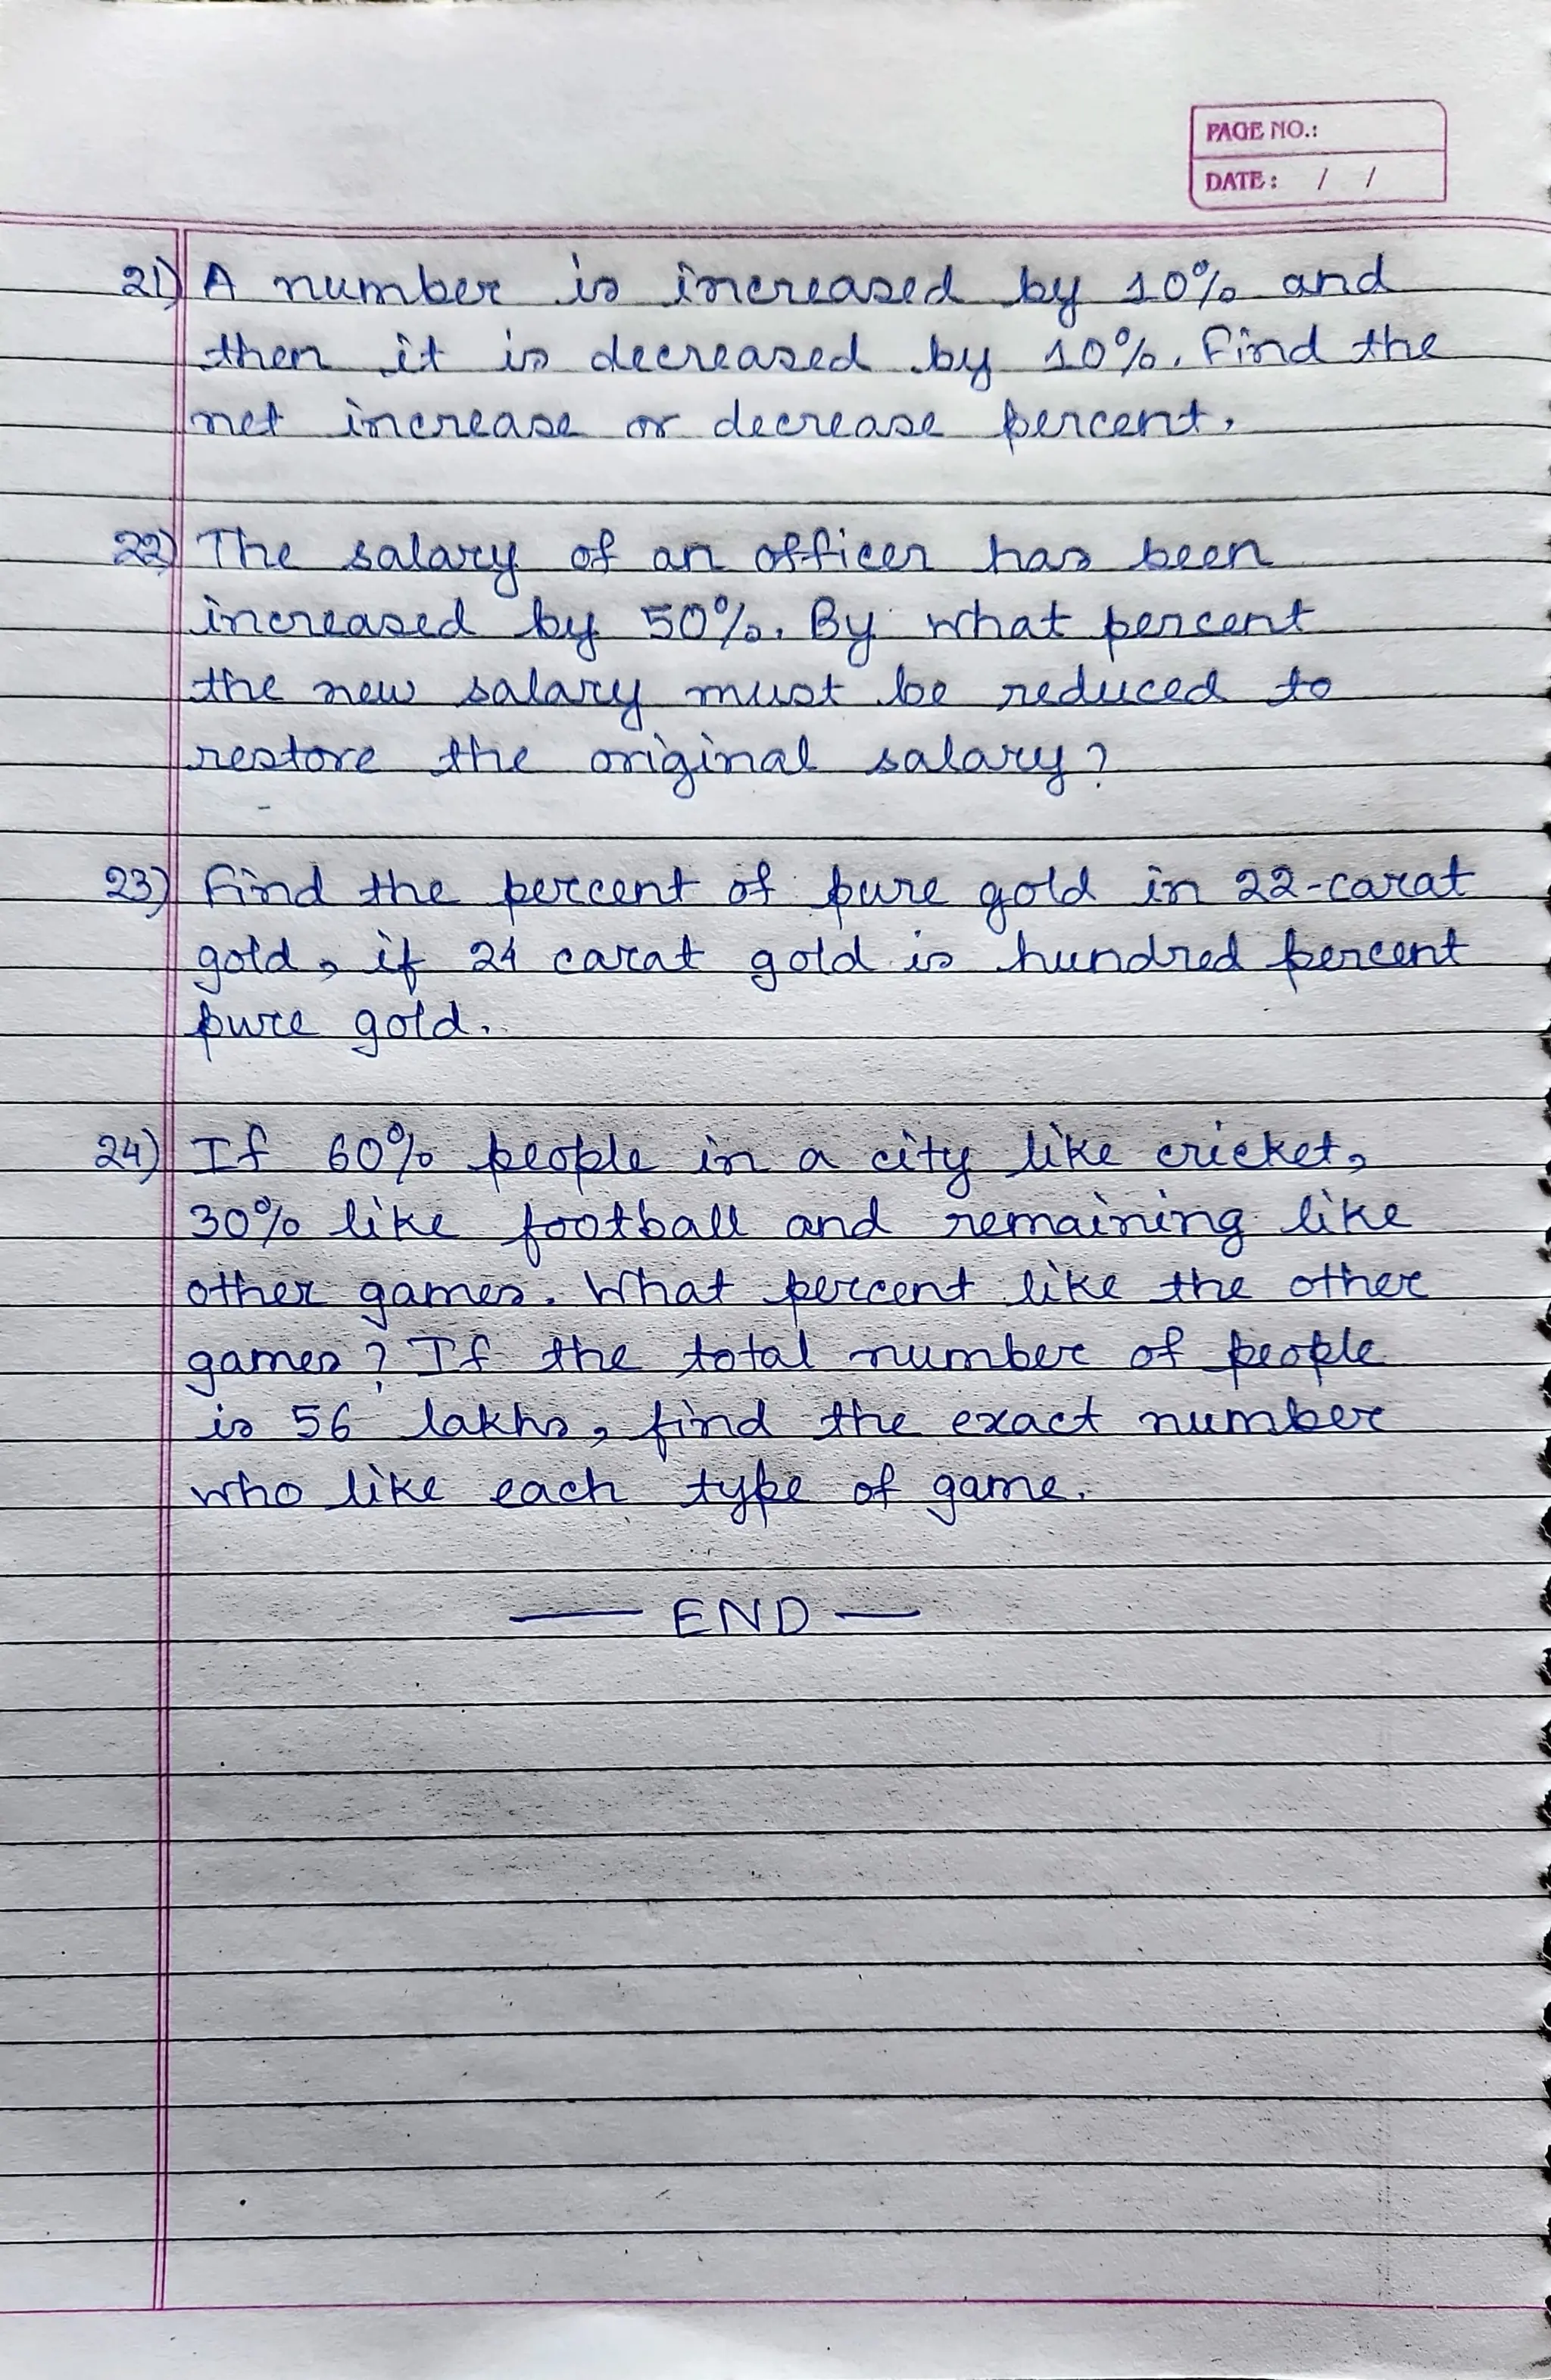 PAGE NO.:
DATE: / /
21) A number is increased by 10% and
then it is decreased by 10%. Find the
net increase or decrease percent.
22) The salary of an officer has been
increased by 50%. By what percent
the new salary must be reduced to
restore the original salary?
23) Find the percent of pure gold in 22-carat
gold, if 24 carat gold is hundred percent
pure gold.
24) If 60% people in a city like cricket,
30% like football and remaining like
other games. What percent like the other
games? If the total number of people
is 56 lakhs, find the exact number
who like each type of game.
— END —